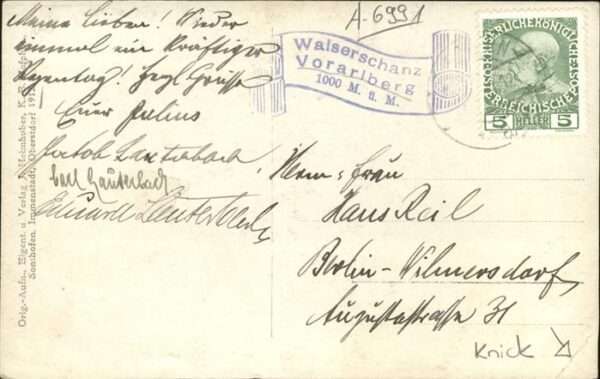 Meine Lieben! Wieder
einmal ein kräftiger
Regentag! Herzl. Grüsse
Euer Julius
Jacob Lauterbach
Carl Lauterbach
Eduard Lauterbach
A-6991
Walserschanz
Vorarlberg
1000 M. ü. M.
KAISERLICHE KÖNIGLICHE
ÖSTERREICHISCHE POST
5 HELLER 5
Herrn u. Frau
Hans Reil
Berlin-Wilmersdorf,
Augustastrasse 31
Knick
Orig.-Aufn., Eigent. u. Verlag J. Heimhuber, K. B.
Sonthofen, Immenstadt, Oberstdorf